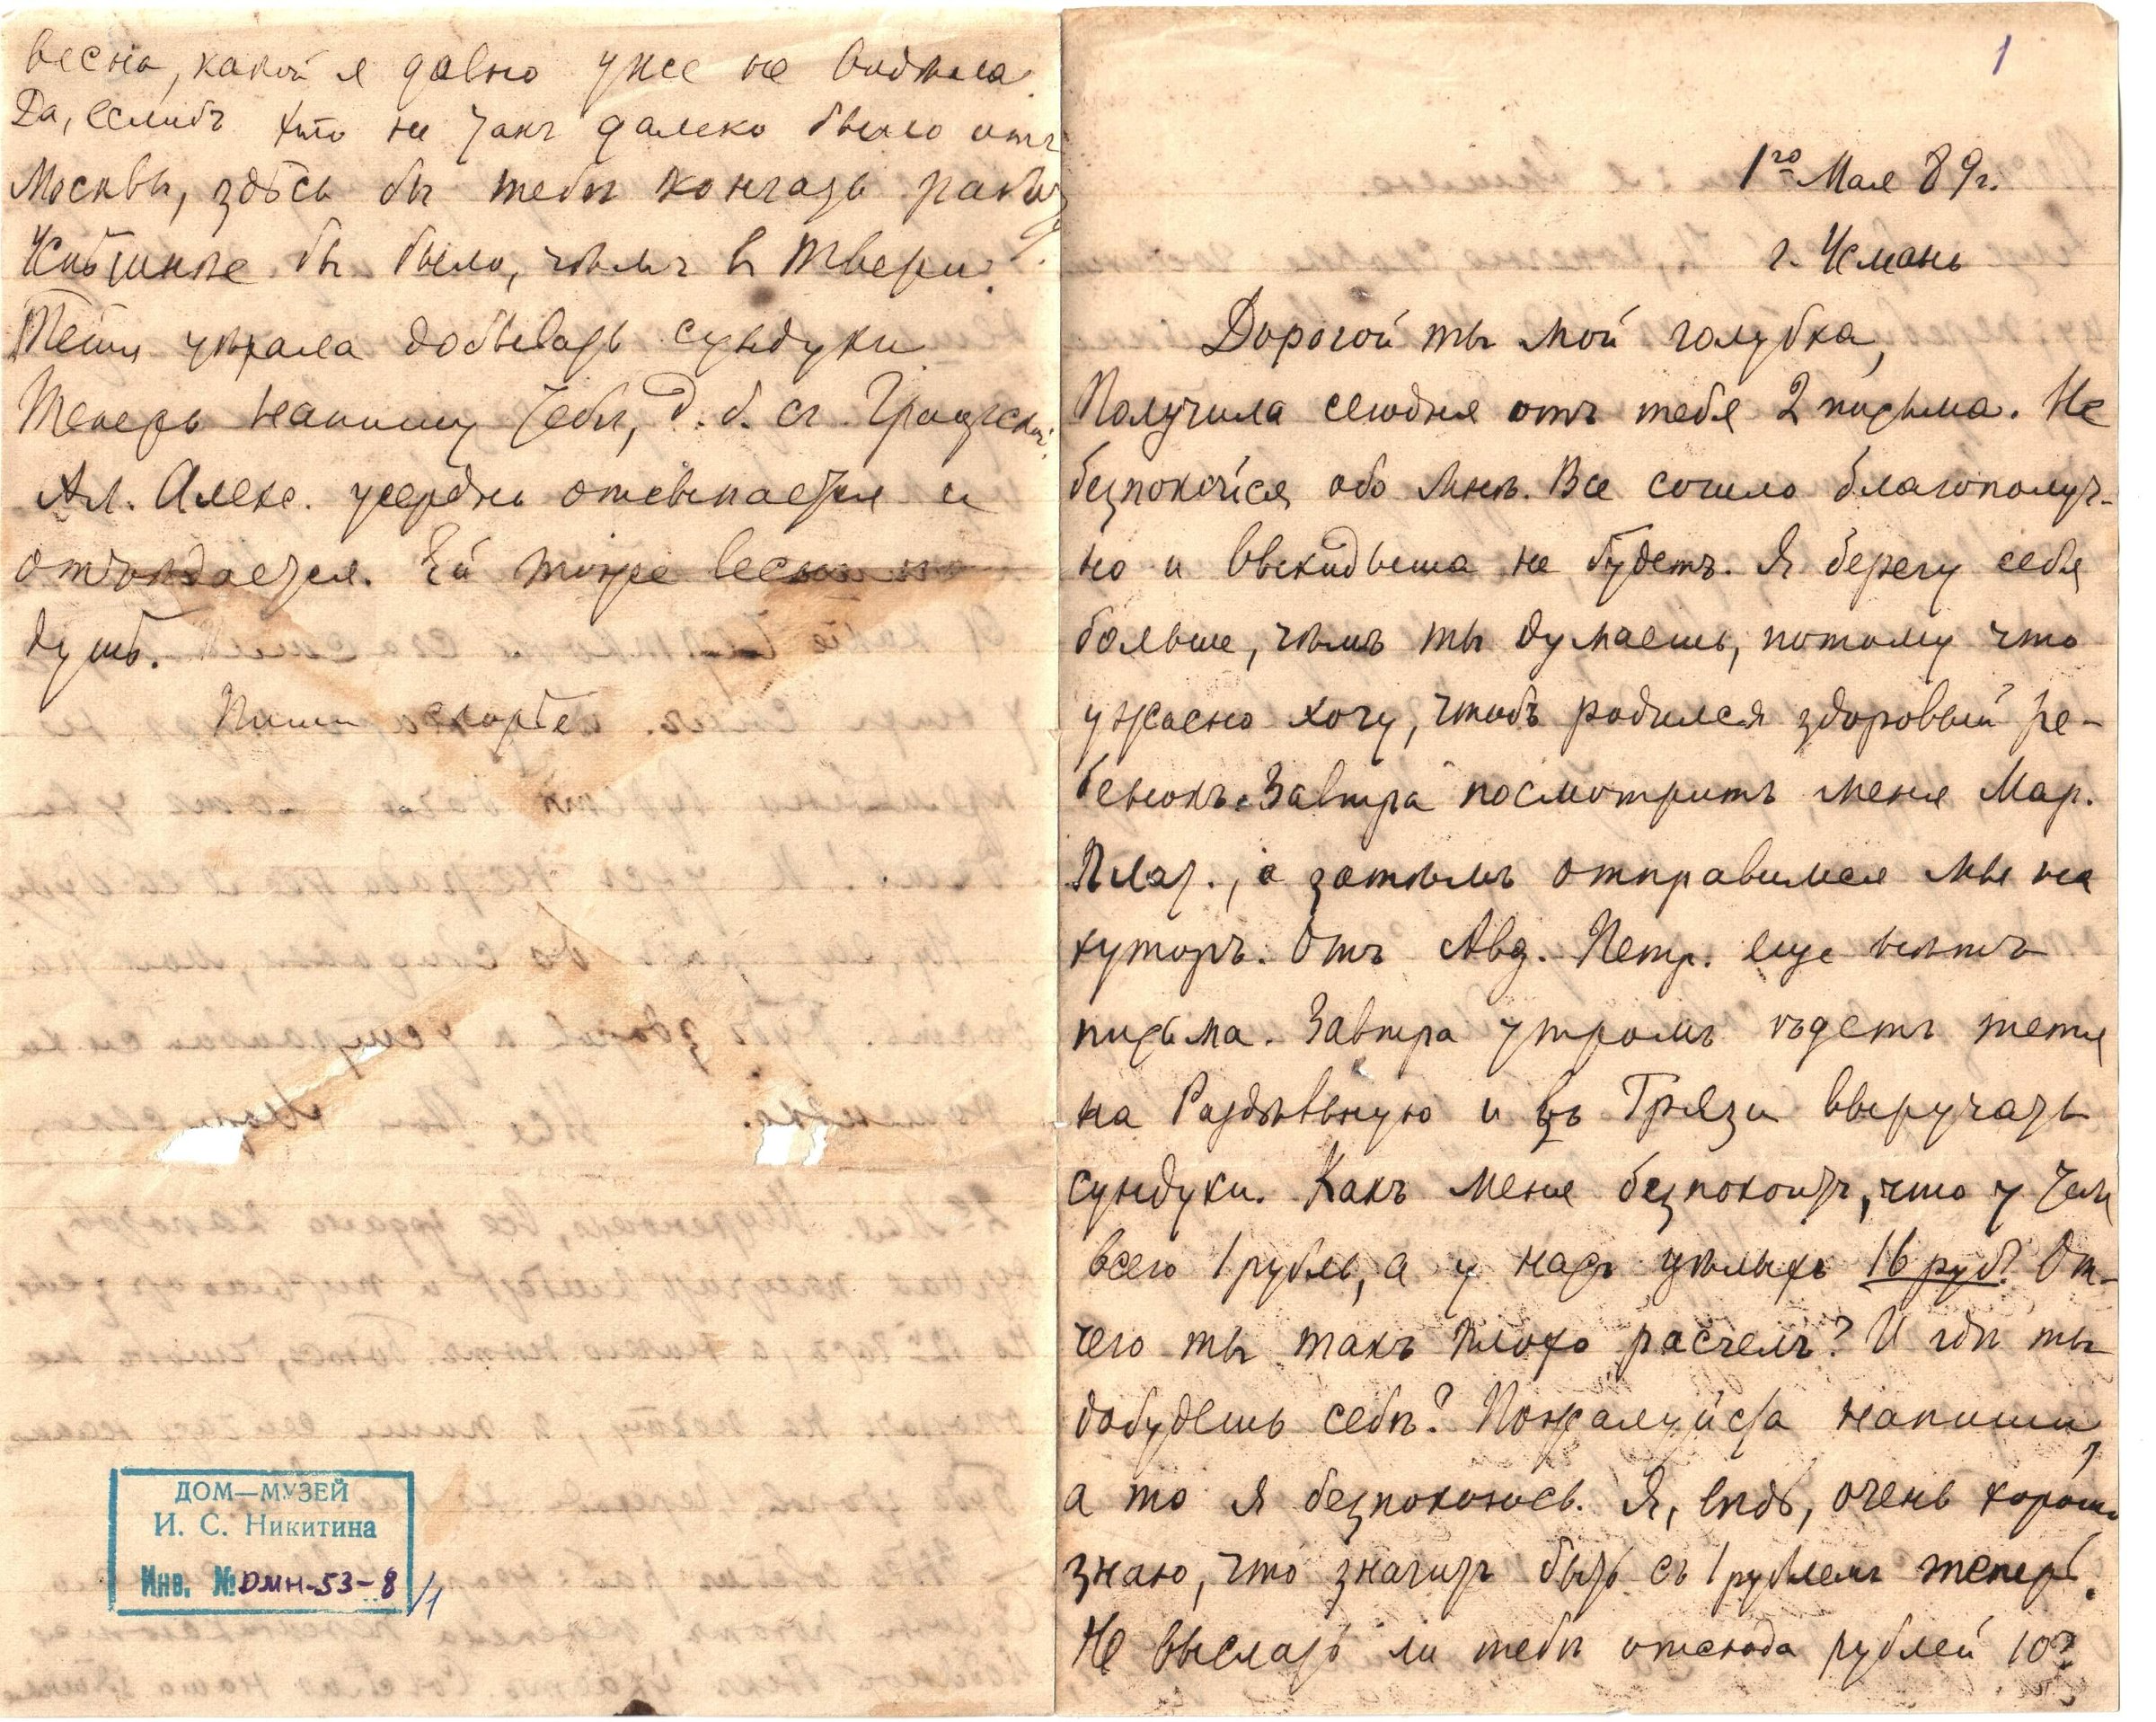 1
1го Мая 89 г.
г. Усмань
Дорогой ты мой голубка,
Получила сегодня отъ тебя 2 письма. Не
безпокойся обо мнѣ. Все сошло благополуч-
но и выкидыша не будетъ. Я берегу себя
больше, чѣмъ ты думаешь, потому что
ужасно хочу, чтобъ родился здоровый ре-
бенокъ. Завтра посмотритъ меня Мар.
Плат., а затѣмъ отправимся мы на
хуторъ. Отъ Авд. Петр. еще нѣтъ
письма. Завтра утромъ ѣдетъ тетя
на Раздѣльную и въ Грязи выручать
сундуки. Какъ меня безпокоитъ, что у тебя
всего 1 рубль, а у насъ цѣлыхъ 16 руб? От-
чего ты такъ плохо расчелъ? И гдѣ ты
добудешь себѣ? Пожалуйста напиши,
а то я безпокоюсь. Я, вѣдь, очень хорошо
знаю, что значитъ быть съ 1 рублемъ теперь.
Не выслать ли тебѣ отсюда рублей 10?
весна, какой я давно уже не видѣла.
Да, еслибъ это не такъ далеко было отъ
Москвы, здѣсь бы тебѣ кончать работу.
бы было, чѣмъ в Твери.
Тетя уѣхала добывать сундуки.
Теперь напишу тебѣ, д. б. съ
Ал. Алекс. усердно отсыпается и
отъѣдается. Ей тоже весна по
душѣ.
Пиши скорѣе
ДОМ—МУЗЕЙ
И. С. Никитина
Инв. № ДМН-53-8/1